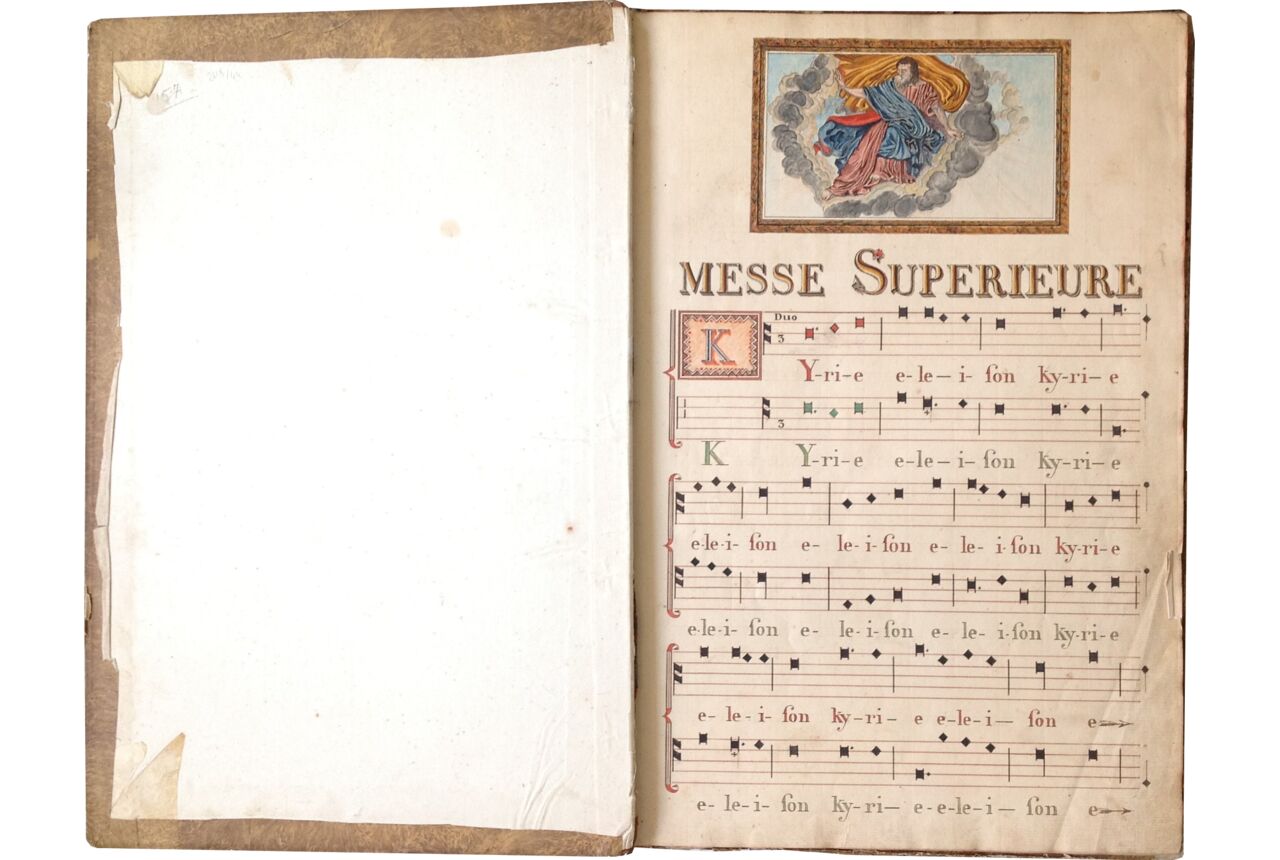 MESSE SUPERIEURE
Duo
K
3
Y-ri-e e-le-i-ſon ky-ri-e
3
K Y-ri-e e-le-i-ſon ky-ri-e
e-le-i-ſon e-le-i-ſon e-le-i-ſon ky-ri-e
e-le-i-ſon e-le-i-ſon e-le-i-ſon ky-ri-e
e-le-i-ſon ky-ri-e e-le-i-ſon e
e-le-i-ſon ky-ri-e-e-le-i-ſon e